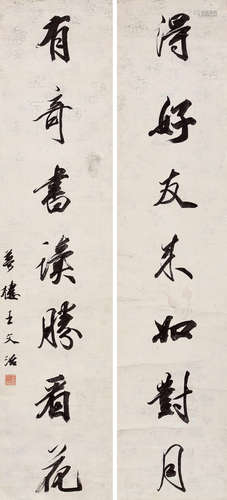 得好友来如對月
有奇書讀勝看花
夢樓王文治